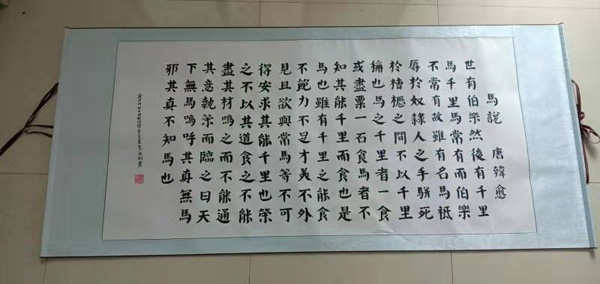 馬說 唐韓愈
世有伯樂然後有千里
馬千里馬常有而伯樂
不常有故雖有名馬祗
辱於奴隸人之手駢死
於槽櫪之間不以千里
稱也馬之千里者一食
或盡粟一石食馬者不
知其能千里而食也是
馬也雖有千里之能食
不飽力不足才美不外
見且欲與常馬等不可
得安求其能千里也策
之不以其道食之不能
盡其材鳴之而不能通
其意執策而臨之曰天
下無馬嗚呼其真無馬
邪其真不知馬也